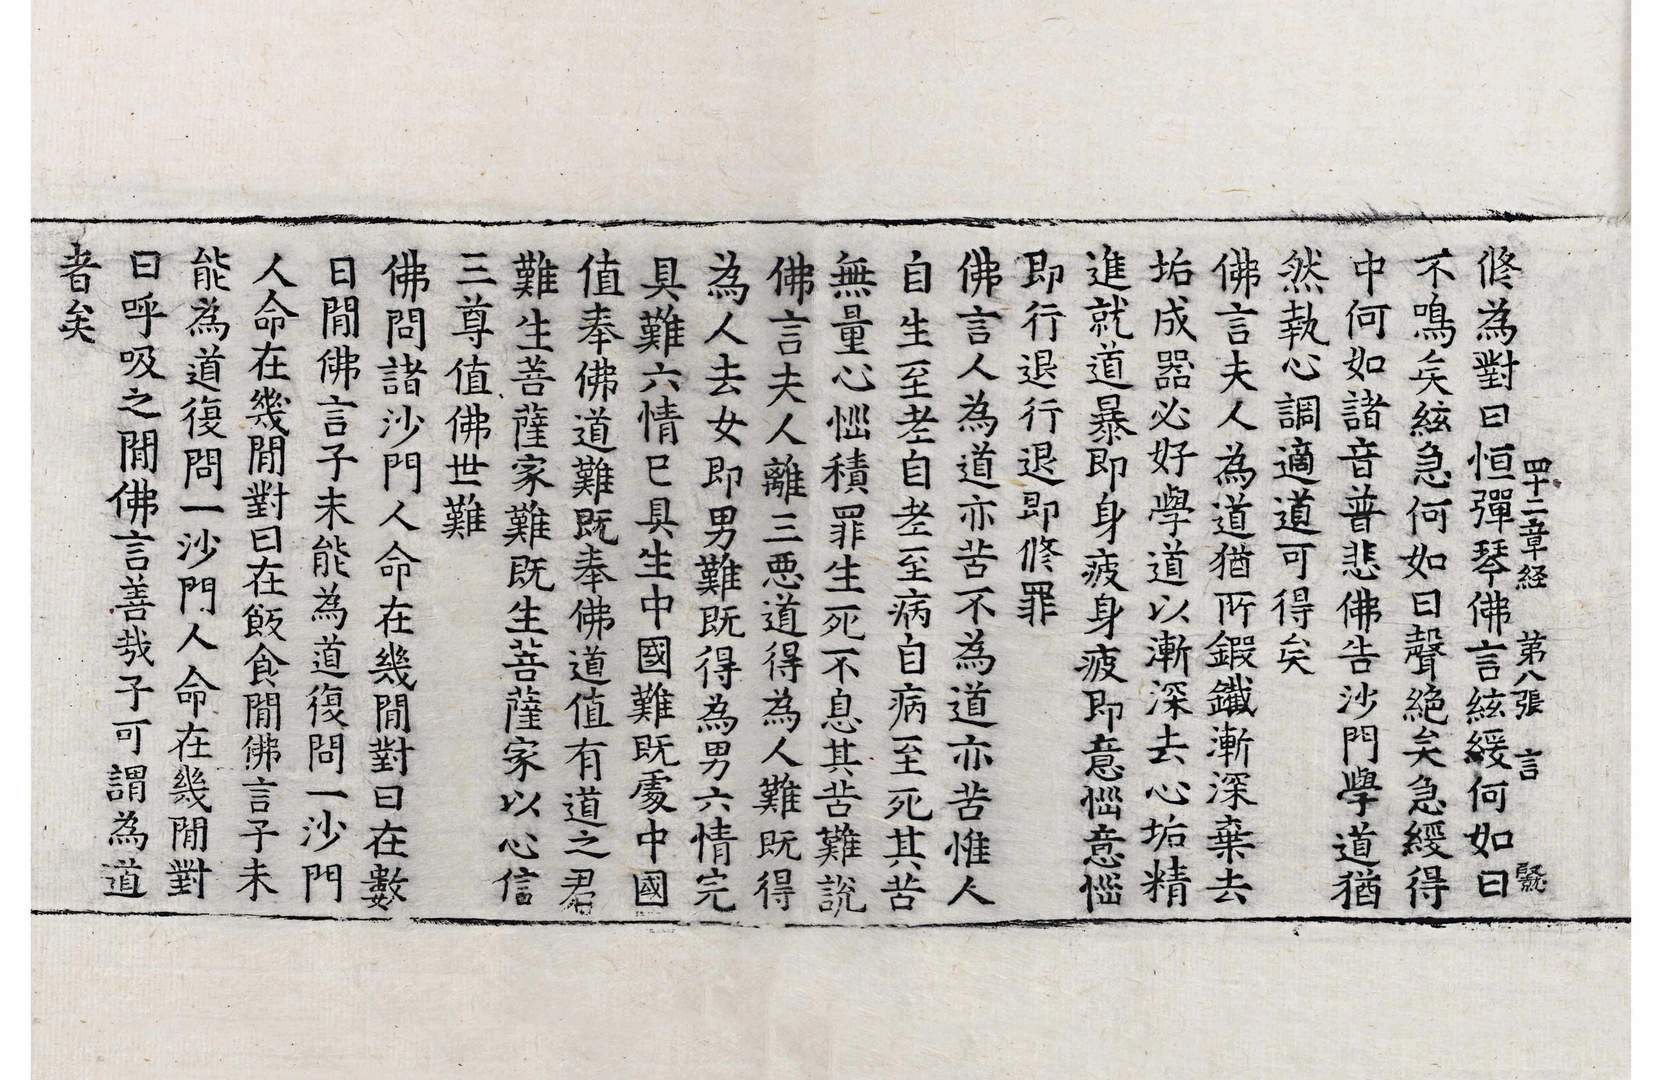 四十二章経 第八張 言
修為對曰恒彈琴佛言絃緩何如曰
不鳴矣絃急何如曰聲絶矣急緩得
中何如諸音普悲佛告沙門學道猶
然執心調適道可得矣
佛言夫人為道猶所鍛鐵漸深棄去
垢成器必好學道以漸深去心垢精
進就道暴即身疲身疲即意惱意惱
即行退行退即修罪
佛言人為道亦苦不為道亦苦惟人
自生至老自老至病自病至死其苦
無量心惱積罪生死不息其苦難說
佛言夫人離三悪道得為人難既得
為人去女即男難既得為男六情完
具難六情已具生中國難既處中國
值奉佛道難既奉佛道值有道之君
難生菩薩家難既生菩薩家以心信
三尊值佛世難
佛問諸沙門人命在幾閒對曰在數
日閒佛言子未能為道復問一沙門
人命在幾閒對曰在飯食閒佛言子未
能為道復問一沙門人命在幾閒對
曰呼吸之閒佛言善哉子可謂為道
者矣